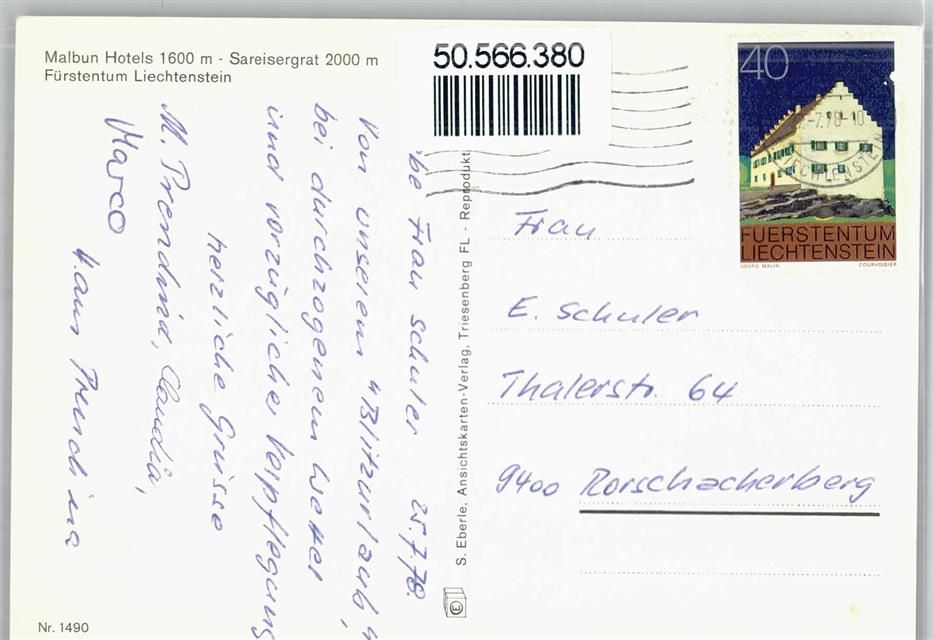 Malbun Hotels 1600 m - Sareisergrat 2000 m
Fürstentum Liechtenstein
50.566.380
40
-7.78-10
LIECHTENSTEIN
FUERSTENTUM
LIECHTENSTEIN
GEORG MALIN COURVOISIER
be Frau Schuler 25.7.78.
Von unserem "Blitzurlaub",
bei durchzogenem Wetter
und vorzüglicher Verpflegung
herzliche Grüsse
M. Claudia,
Marco
S. Eberle, Ansichtskarten-Verlag, Triesenberg FL - Reprodukt
Frau
E. Schuler
Thalerstr. 64
9400 Rorschacherberg
Nr. 1490